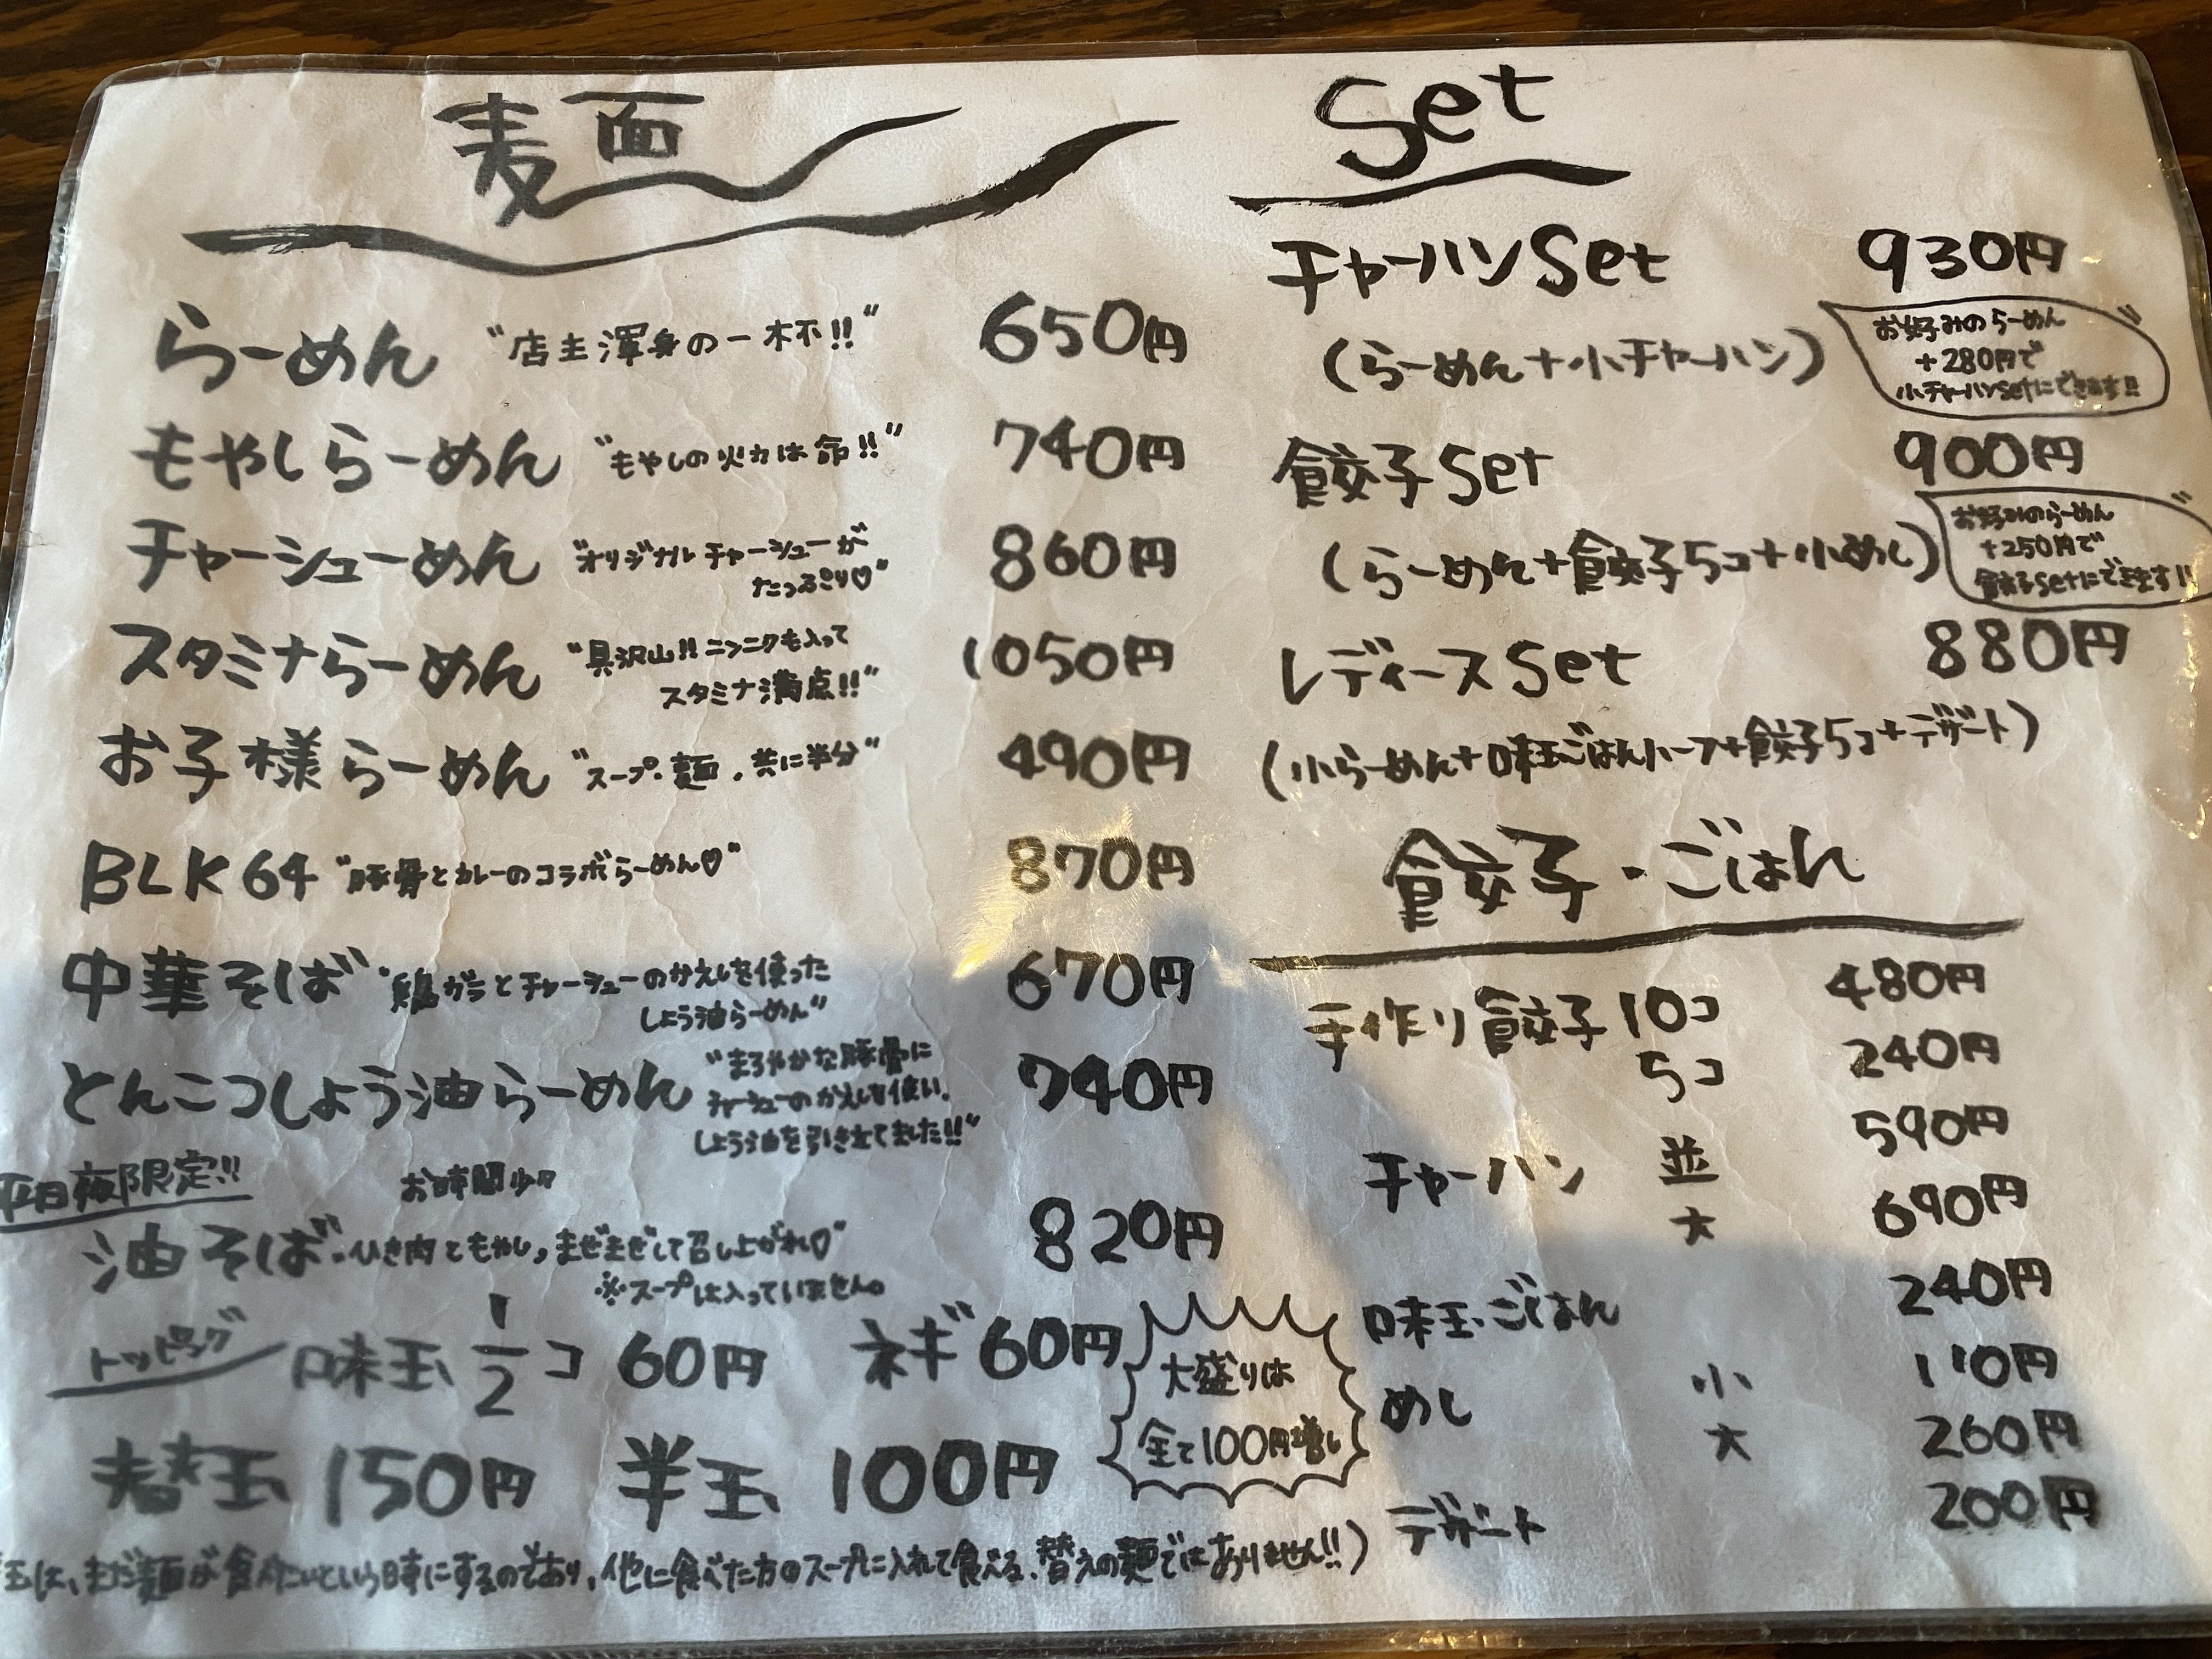 麺
らーめん "店主渾身の一杯!!" 650円
もやしらーめん "もやしの火力は命!!" 740円
チャーシューめん "オリジナルチャーシューが 860円
たっぷり♡"
スタミナらーめん "具沢山!!ニンニクも入って 1050円
スタミナ満点!!"
お子様らーめん "スープ・麺、共に半分" 490円
BLK64 "豚骨とカレーのコラボらーめん♡" 870円
中華そば "鶏ガラとチャーシューのかえしを使った 670円
しょう油らーめん"
とんこつしょう油らーめん "まろやかな豚骨に 740円
チャーシューのかえしを使い、
しょう油を引き立てました!!"
平日夜限定!! お時間少々
油そば "ひき肉ともやし、まぜまぜして召し上がれ♡" 820円
※スープは入っていません。
トッピング 味玉 1/2コ 60円 ネギ 60円
替玉 150円 半玉 100円
大盛りは
全て100円増し
玉は、まだ麺が食べたいという時にするのであり、他に食べた方のスープに入れて食べる、替えの麺ではありません!!)
Set
チャーハンSet 930円
(らーめん+小チャーハン)
お好みのらーめん
+280円で
小チャーハンSetにできます!!
餃子Set 900円
(らーめん+餃子5コ+小めし)
お好みのらーめん
+250円で
餃子Setにできます!!
レディースSet 880円
(小らーめん+味玉ごはんハーフ+餃子5コ+デザート)
餃子・ごはん
手作り餃子 10コ 480円
5コ 240円
チャーハン 並 590円
大 690円
味玉ごはん 240円
めし 小 110円
大 260円
デザート 200円